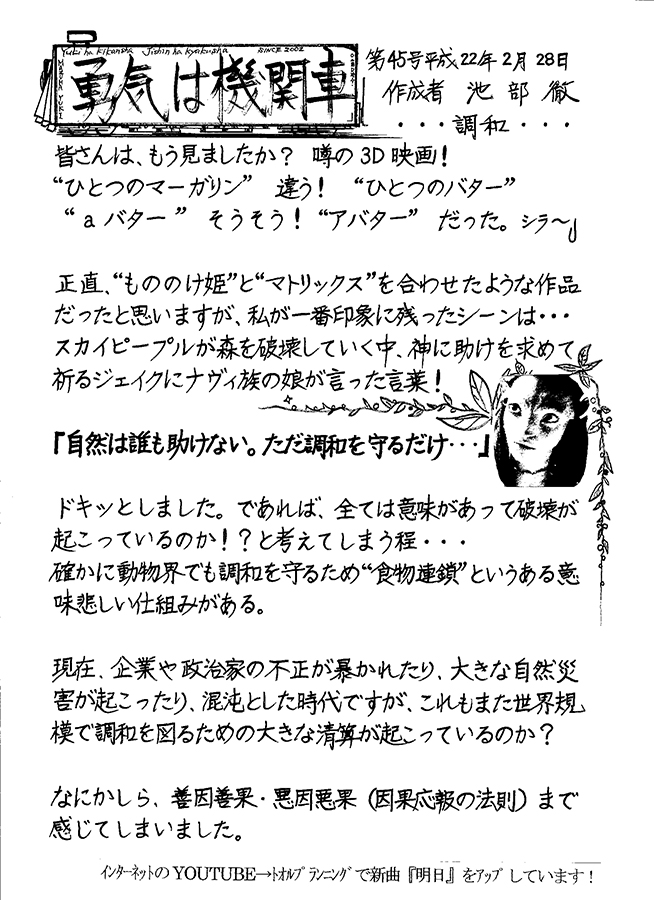 Yuki ha Kikansha Jishin ha Kyakusha SINCE 2002
勇気は機関車
第45号平成22年2月28日
作成者 池部 徹
・・・調和・・・
皆さんは、もう見ましたか? 噂の3D映画!
“ひとつのマーガリン” 違う! “ひとつのバター”
“aバター” そうそう! “アバター” だった。シラ〜
正直、“もののけ姫”と“マトリックス”を合わせたような作品
だったと思いますが、私が一番印象に残ったシーンは・・・
スカイピープルが森を破壊していく中、神に助けを求めて
祈るジェイクにナヴィ族の娘が言った言葉!
『自然は誰も助けない。ただ調和を守るだけ・・・』
ドキッとしました。であれば、全ては意味があって破壊が
起こっているのか!?と考えてしまう程・・・
確かに動物界でも調和を守るため“食物連鎖”というある意
味悲しい仕組みがある。
現在、企業や政治家の不正が暴かれたり、大きな自然災
害が起こったり、混沌とした時代ですが、これもまた世界規
模で調和を図るための大きな清算が起こっているのか?
なにかしら、善因善果・悪因悪果（因果応報の法則）まで
感じてしまいました。
インターネットのYOUTUBE→トオルプランニングで新曲『明日』をアップしています!